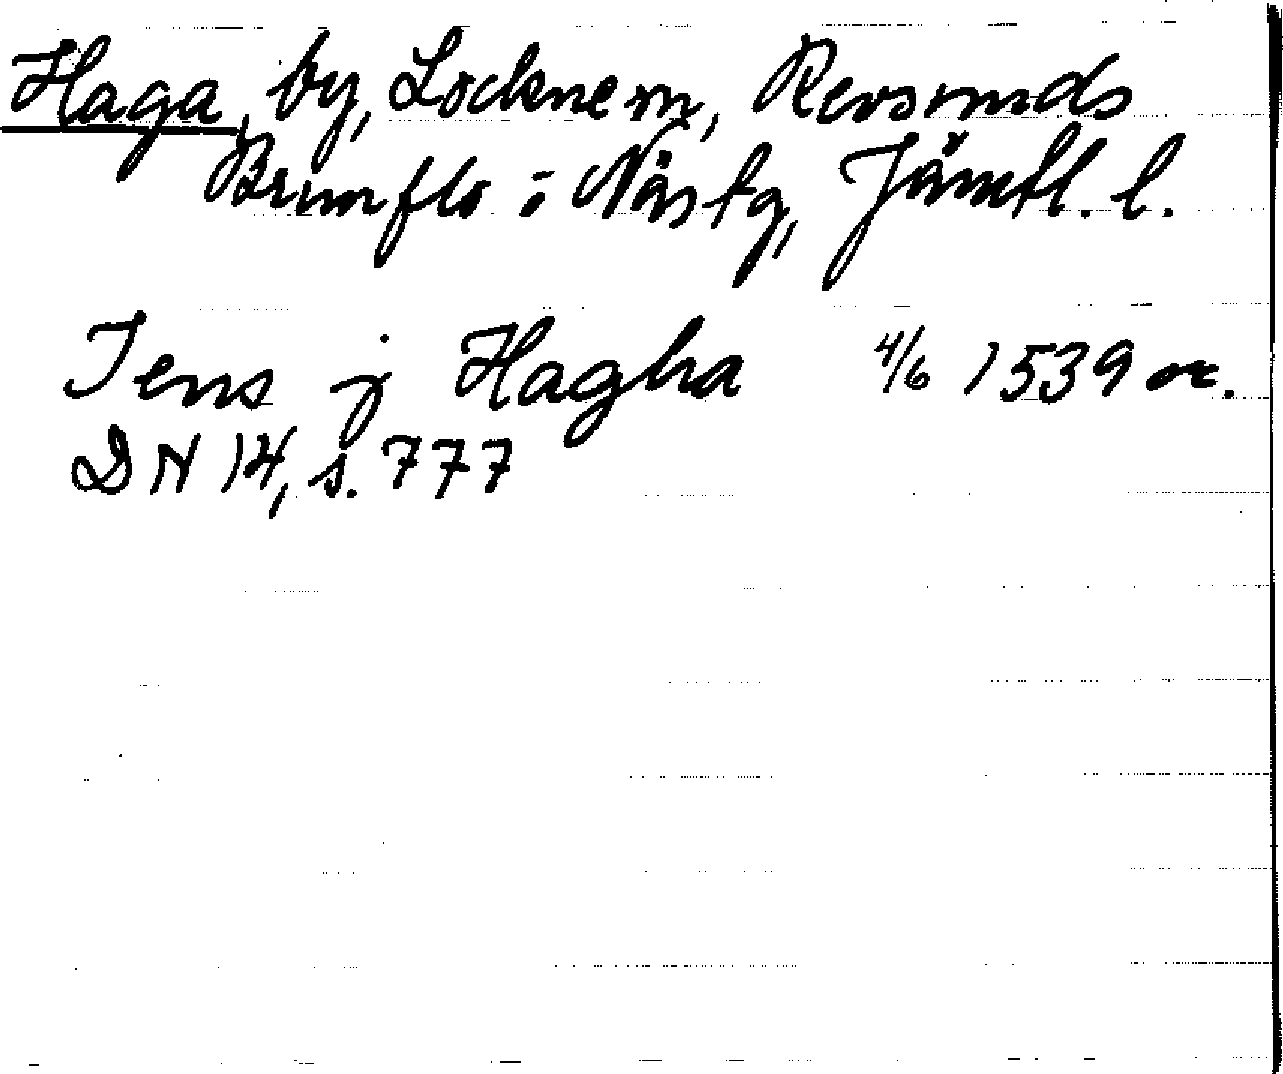 Haga, by, Lockne sn, Revsunds
Brunflo o Näs tg, Jämtl. l.
Jens j Hagha 4/6 1539 or.
DN 14, s. 777